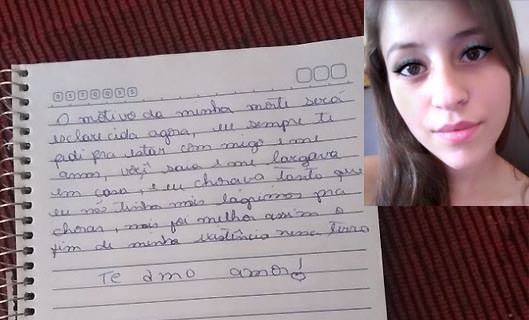 O motivo da minha morte será
esclarecida agora, eu sempre te
pedi pra estar com migo e me
amar, você saia e me largava
em casa, e eu chorava tanto que
eu não tinha mais lágrimas pra
chorar, mais foi melhor assim o
fim de minha existência nessa terra
Te amo amor!